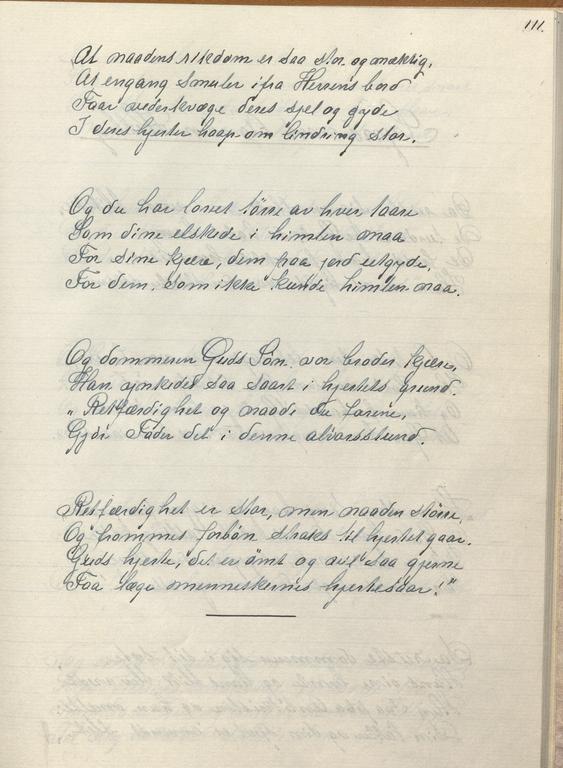 111.
At naadens rikdom er saa stor og mæktig,
At engang Smuler ifra Herrens bord
Faar vederkvæge deres sjel og gyde
I deres hjerter haap om lindring stor.
Og du har lovet tørre av hver taare
Som dine elskede i himlen maa
For sine kjære, dem paa jord utgyde,
For dem, som ikke kunde himlen naa.
Og dommeren Guds Søn, vor broder kjære,
Han ynkedes saa saart i hjertets grund.
"Retfærdighet og naade du forene,
Gjør Fader det i denne alvorsstund
Retfærdighet er stor, men naaden større,
Og hommes forbøn straks til hjertet gaar.
Guds hjerte, det er ømt og vil saa gjerne
Faa læge menneskernes hjertesaar!"